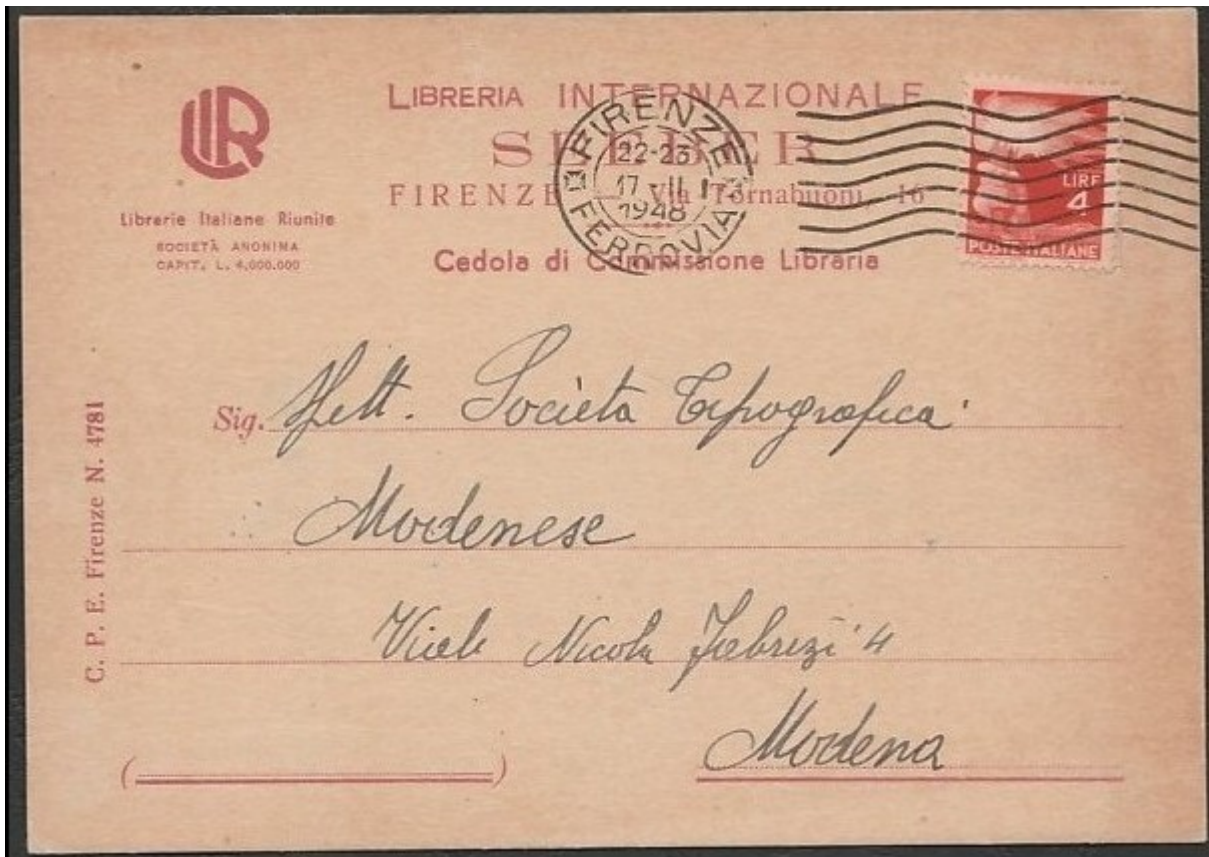 LIR
Librerie Italiane Riunite
SOCIETÀ ANONIMA
CAPIT. L. 4.000.000
LIBRERIA INTERNAZIONALE
SEEBER
FIRENZE — Via Tornabuoni, 16
Cedola di Commissione Libraria
FIRENZE
22-23
17 VII
1948
FERROVIA
LIRE
4
POSTE ITALIANE
C. P. E. Firenze N. 4781
Sig. Spett. Società Tipografica
Modenese
Viale Nicola Fabrizi 4
Modena